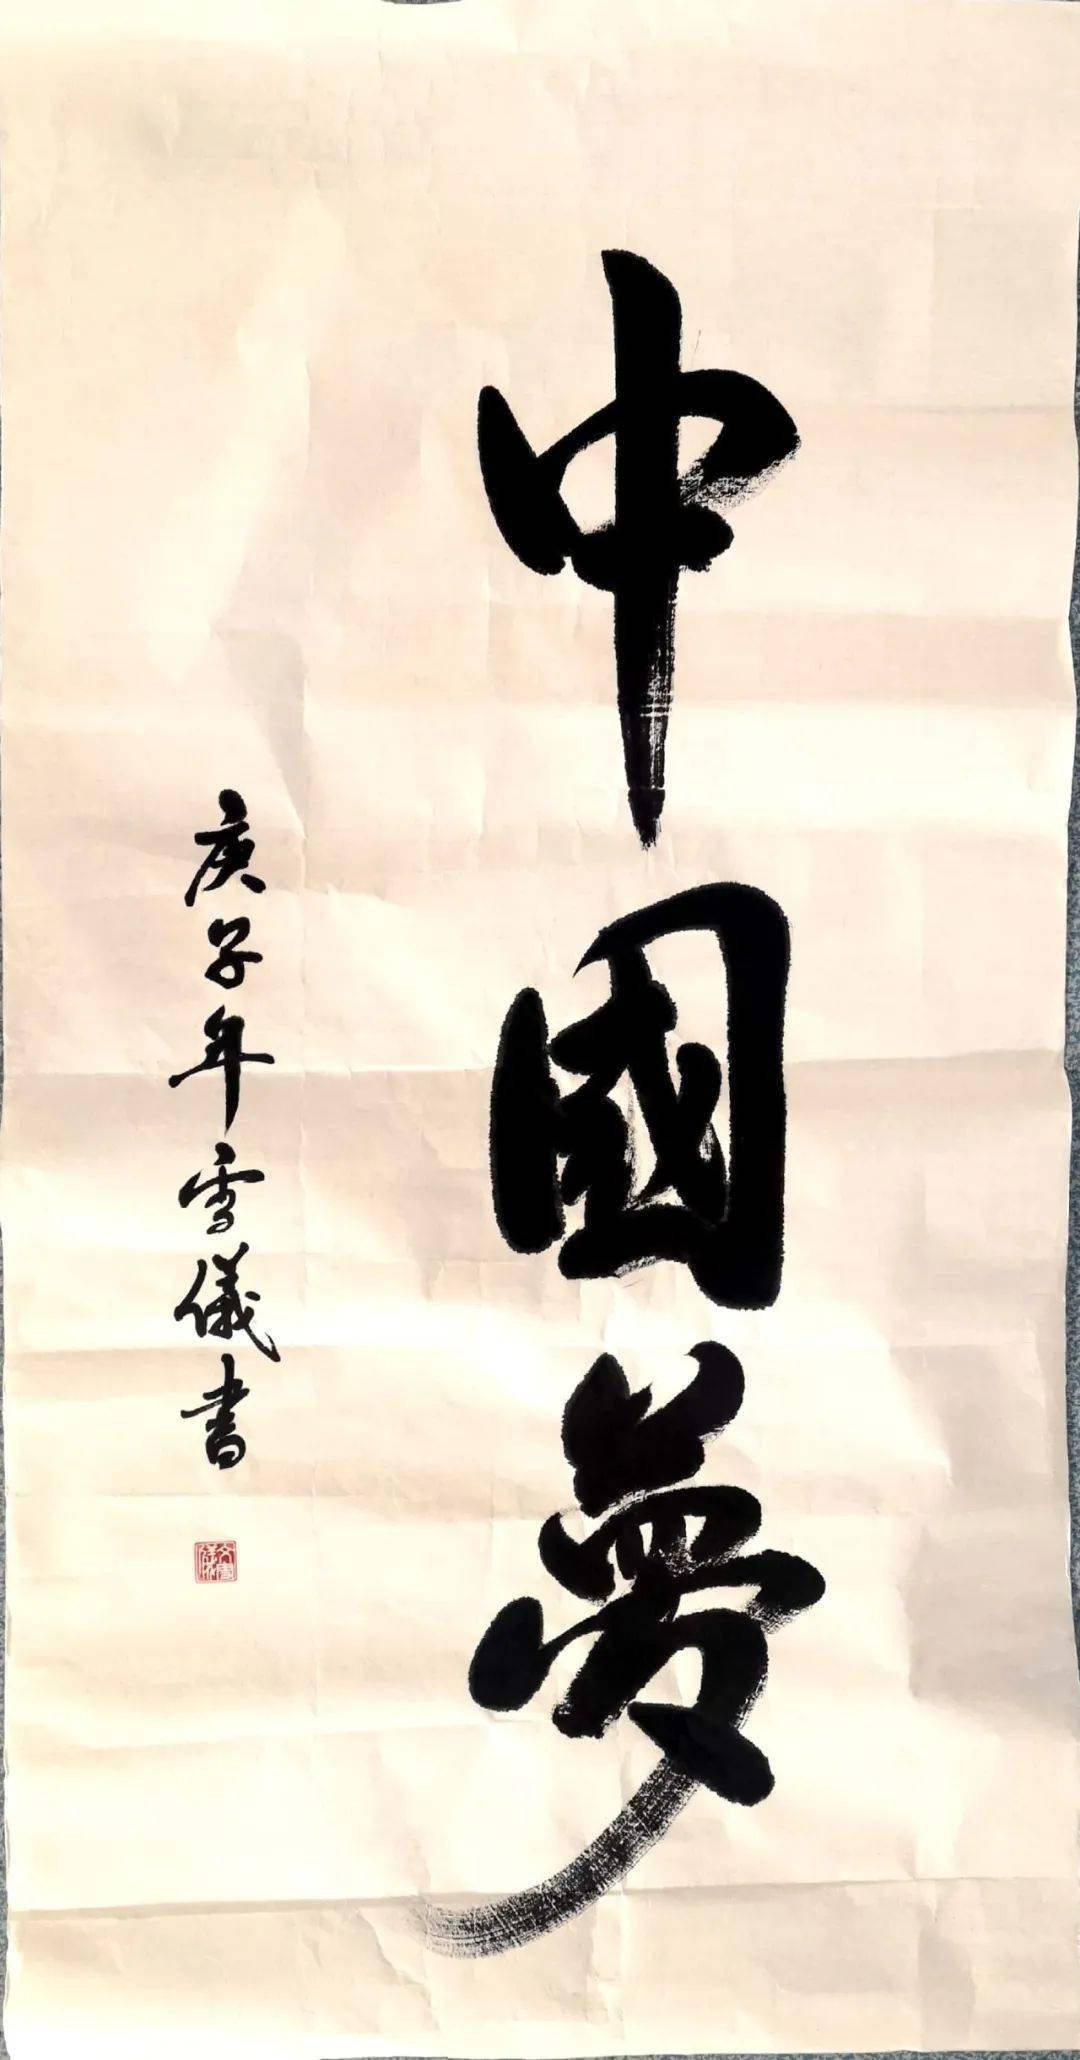 中國夢
庚子年雪儀書